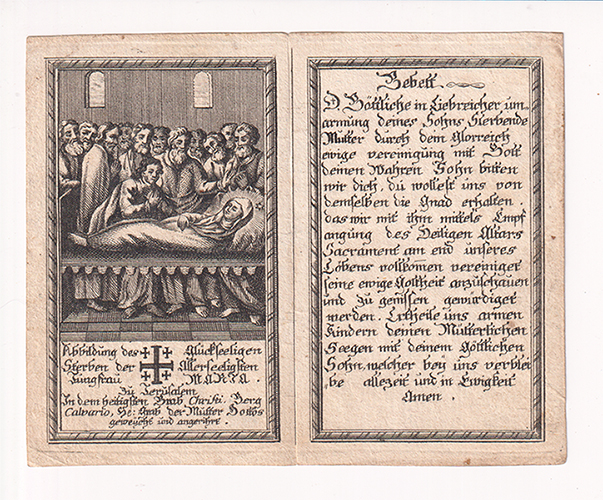 Abbildung des Glückseeligen
Sterben der Allerseeligsten
Jungfrau MARIA.
Zu Jerusalem
In dem heiligsten Grab Christi. Berg
Calvario, He: Grab der Mutter Gottes
geweÿcht und angerihrt.
Gebett.
O Göttliche in Liebreicher um-
armung deines Sohns Sterbende
Mutter durch dem Glorreich
ewige vereinigung mit Gott
deinen Wahren Sohn bitten
wir dich, du wollest uns von
demselben die Gnad erhalten.
das wir mit ihm mittels Empf
angung des Heiligen Altars
Sacrament am end unseres
Lebens vollkom̄en vereiniget
seine ewige Gottheit anzuschauen
und zu genissen, gewürdiget
werden. Ertheile uns armen
Kindern deinen Mütterlichen
Seegen mit deinem Göttlichen
Sohn, welcher beÿ uns verblei
be allezeit und in Ewigkeit
Amen.